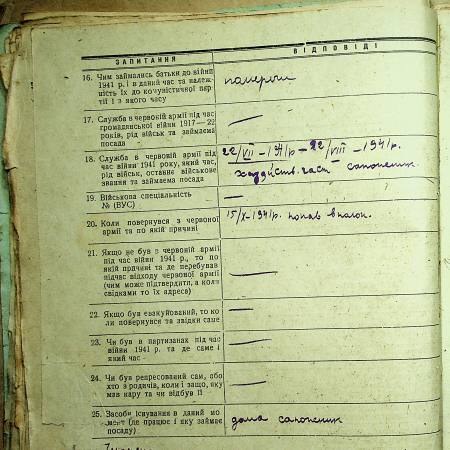 ЗАПИТАННЯ ВІДПОВІДІ
16. Чим займались батьки до війни
1941 р. і в даний час та належ-
ність їх до комуністичної пар-
тії і з якого часу
померли
17. Служба в червоній армії під час
громадянської війни 1917—22
років, рід військ та займаєма
посада
—
18. Служба в червоній армії під
час війни 1941 року, який час,
рід військ, останнє військове
звання та займаєма посада
22/VII – 1941р – 22/VIII – 1941р.
част сапожник
19. Військова спеціальність
№ (ВУС)
—
20. Коли повернувся з червоної
армії та по якій причині
15/X-1941р. попав в плен.
21. Якщо не був в червоній армії
під час війни 1941 р., то по
якій причині та де перебував
підчас відходу червоної армії
(чим може підтвердити, а коли
свідками то їх адреса)
—
22. Якщо був евакуйований, то ко-
ли повернувся та звідки саме
—
23. Чи був в партизанах під час
війни 1941 р. та де саме і
який час
—
24. Чи був репресований сам, або
хто з родичів, коли і защо, яку
мав кару та чи відбув її
—
25. Засоби існування в даний мо-
мент (де працює і яку займає
посаду)
дома сапожник